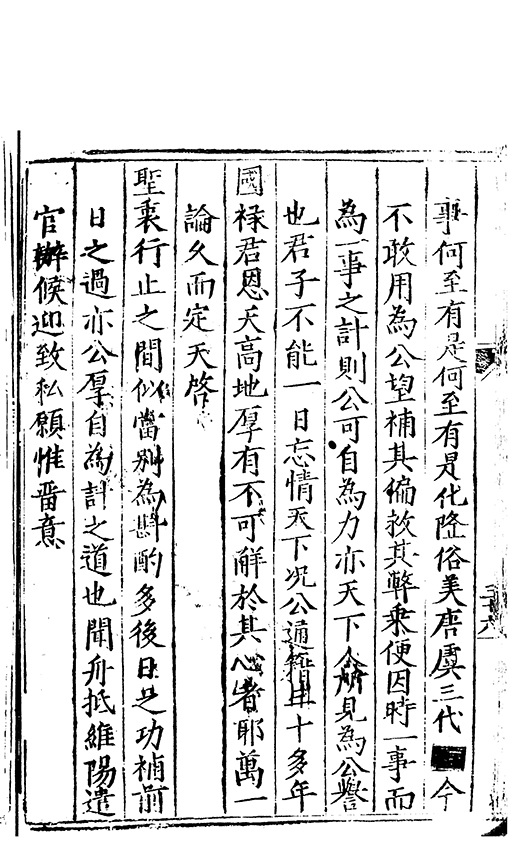 事何至有是何至有是化隆俗美唐虞三代今
不敢用為公望補其偏救其弊乘便因時一事而
為一事之計則公可自為力亦天下人所見為公譽
也君子不能一日忘情天下况公通籍廿十多年
國祿君恩天高地厚有不可解於其心者耶萬一
論久而定天啓
聖衷行止之間似當別為斟酌多後日之功補前
日之過亦公厚自為計之道也聞舟抵維陽遣
官辦候迎致私願惟畱意